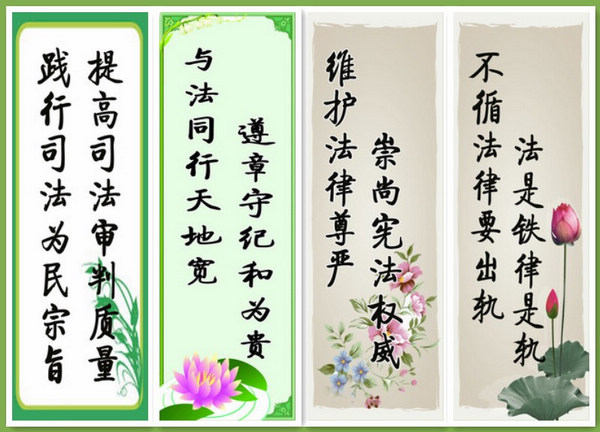 提高司法审判质量
践行司法为民宗旨
遵章守纪和为贵
与法同行天地宽
崇尚宪法权威
维护法律尊严
法是铁律是轨
不循法律要出轨